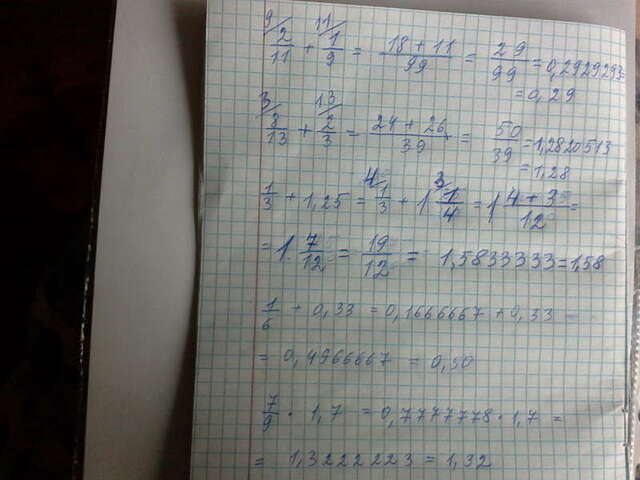 9/ 2/11 + 11/ 1/9 = (18 + 11)/99 = 29/99 = 0,2929293
= 0,29
3/ 8/13 + 13/ 2/3 = (24 + 26)/39 = 50/39 = 1,2820513
= 1,28
1/3 + 1,25 = 4/ 1/3 + 1 3/ 1/4 = 1 (4 + 3)/12 =
= 1 7/12 = 19/12 = 1,5833333 = 1,58
1/6 + 0,33 = 0,1666667 + 0,33 =
= 0,4966667 = 0,50
7/9 · 1,7 = 0,7777778 · 1,7 =
= 1,3222223 = 1,32